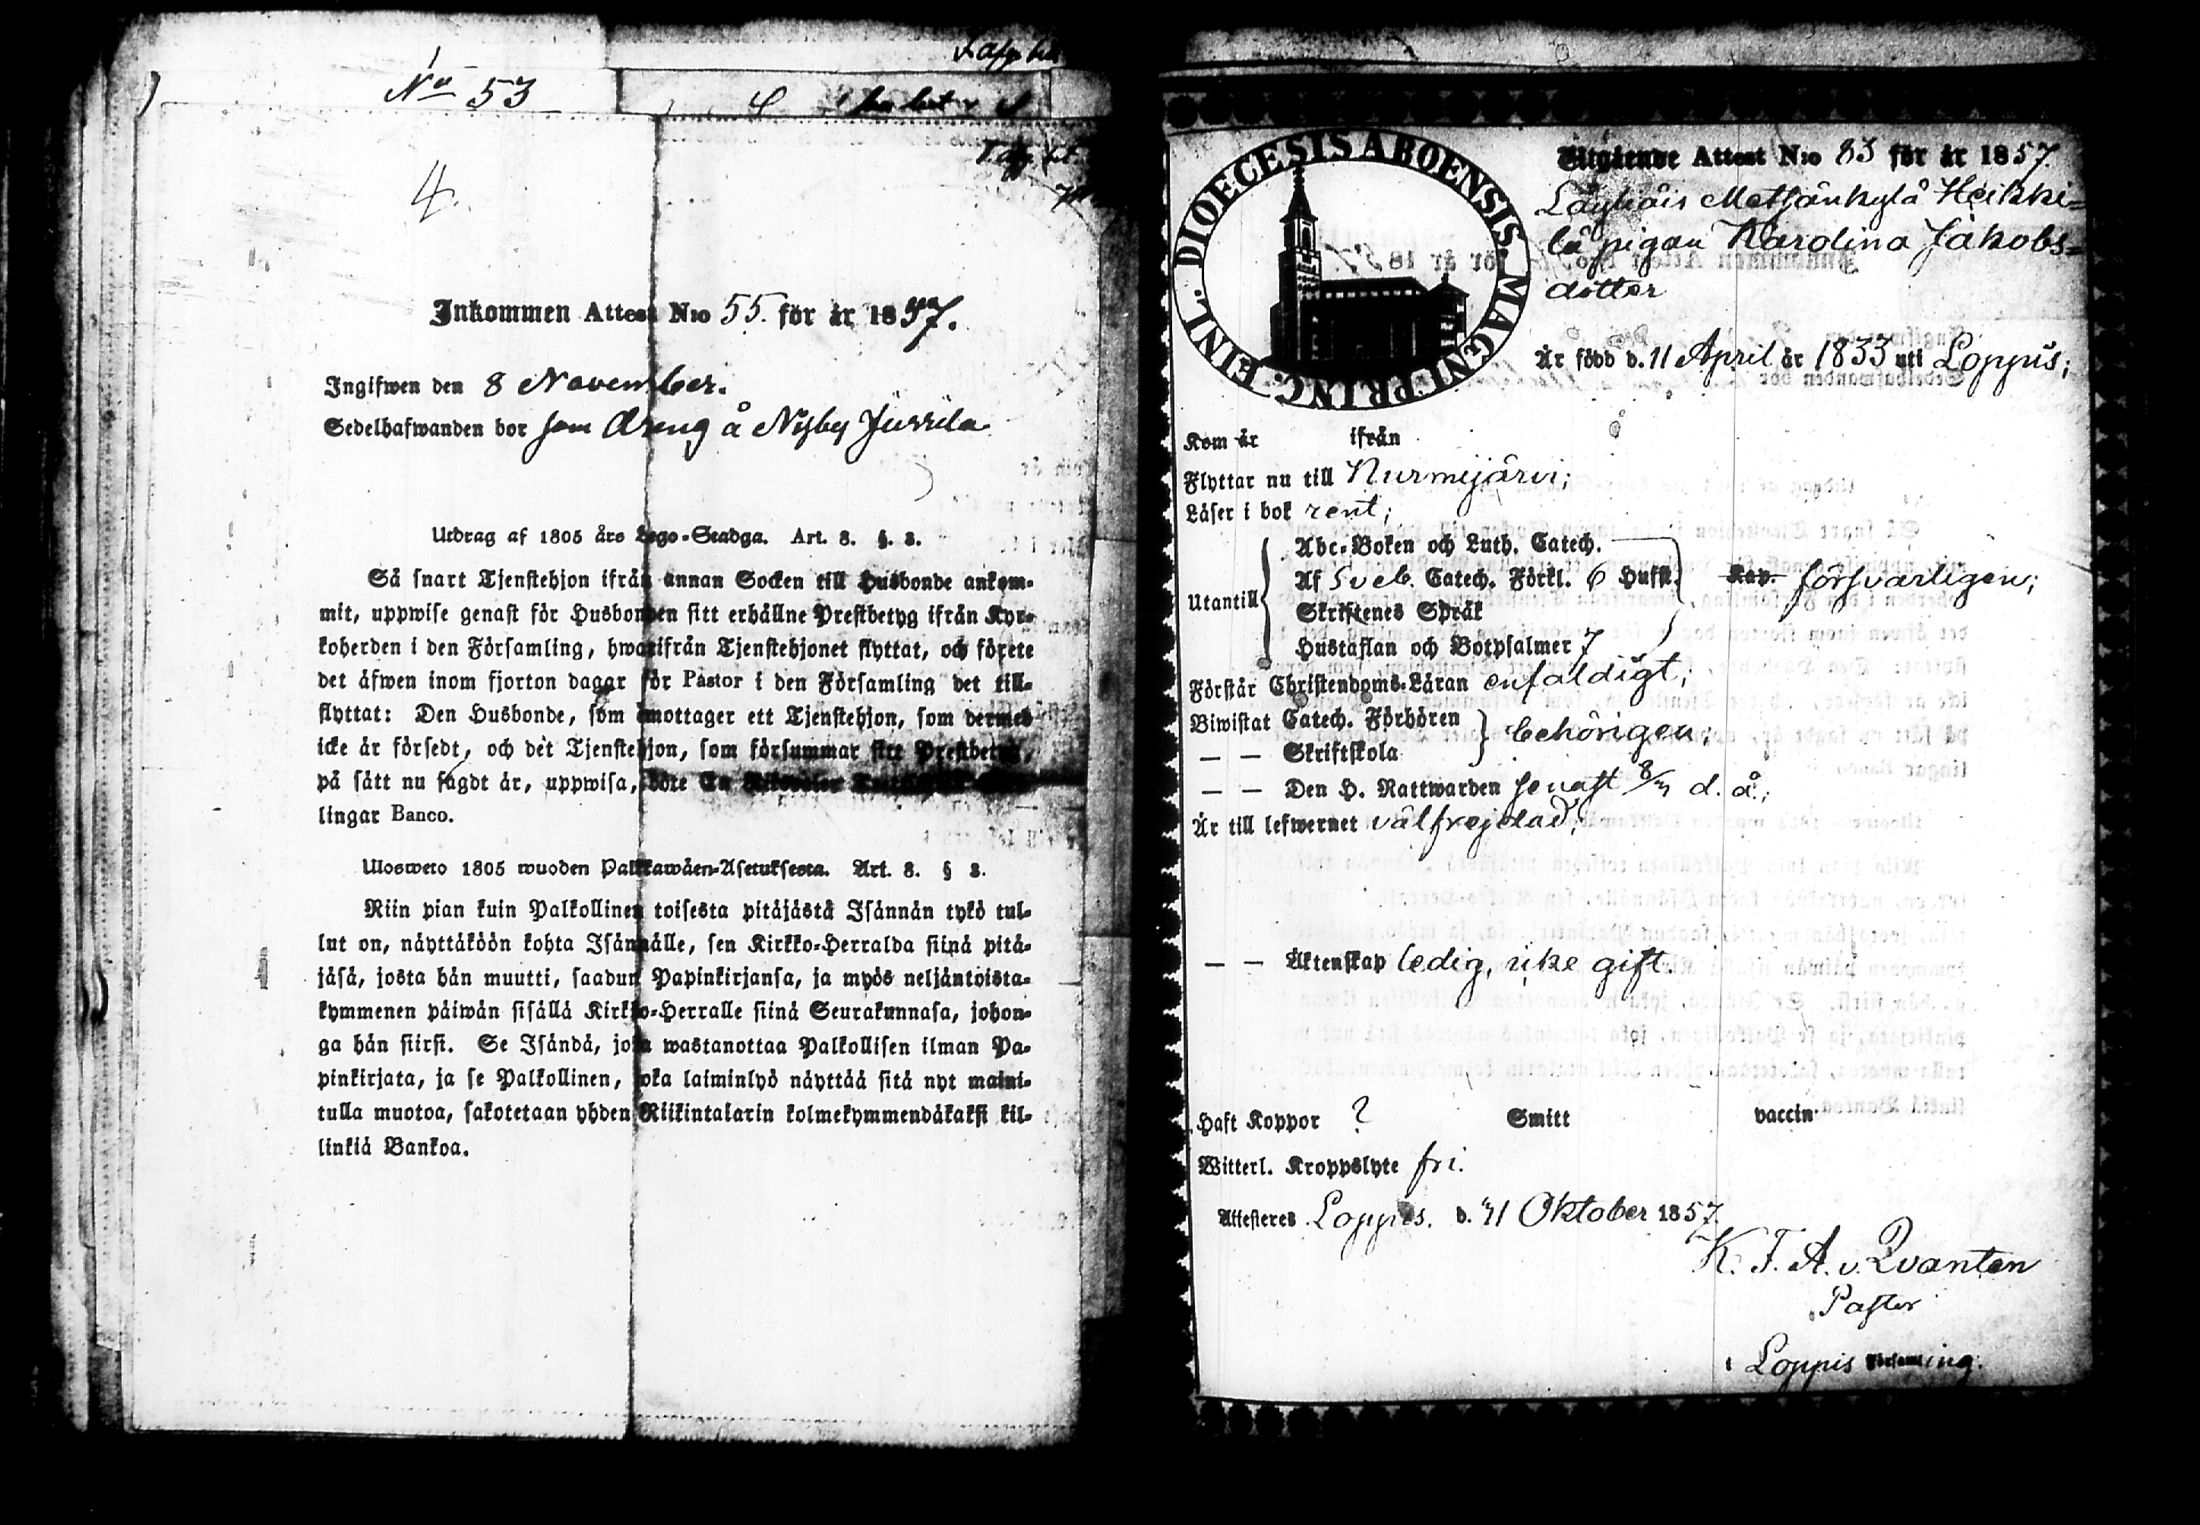 No 53
4.
Inkommen Attest N:o 55. för år 1857.
Ingifwen den 8 November.
Sedelhafwanden bor som Dreng å Nyby Jussila
Utdrag af 1805 års Lego-Stadga. Art. 8. §. 3.
Så snart Tjenstehjon ifrån annan Socken till Husbonde ankom-
mit, uppwise genast för Husbonden sitt erhållne Prestbetyg ifrån Kyr-
koherden i den Församling, hwarifrån Tjenstehjonet flyttat, och förete
det äfwen inom fjorton dagar för Pastor i den Församling det till-
flyttat: Den Husbonde, som emottager ett Tjenstehjon, som dermed
icke är försedt, och det Tjenstehjon, som försummar sitt Prestbetyg,
på sätt nu sagdt är, uppwisa, böte En Riksdaler
lingar Banco.
Ulosweto 1805 wuoden Palkkawäen-Asetuksesta. Art. 8. § 3.
Niin pian kuin Palkollinen toisesta pitäjästä Isännän tykö tul-
lut on, näyttäköön kohta Isännälle, sen Kirkko-Herralda siinä pitä-
jäsä, josta hän muutti, saadun Papinkirjansa, ja myös neljäntoista-
kymmenen päiwän sisällä Kirkko-Herralle siinä Seurakunnasa, johon-
ga hän siirsi. Se Isändä, joka wastanottaa Palkollisen ilman Pa-
pinkirjata, ja se Palkollinen, joka laiminlyö näyttää sitä nyt maini-
tulla muotoa, sakotetaan yhden Riikintalarin kolmekymmendäkaksi kil-
linkiä Bankoa.
DIOECESIS ABOENSIS. MAGNI PRINC. FINL.
Utgående Attest N:o 83 för år 1857.
Läyliäis Metsänkylä Heikki-
lä pigan Karolina Jakobs-
dotter
Är född d. 11 April år 1833 uti Loppis;
Kom år ifrån
Flyttar nu till Nurmijärvi;
Läser i bok rent;
Utantill
Abc-Boken och Luth. Catech.
Af Sveb. Catech. Förkl. 6 Hufst. Kap. försvarligen;
Skriftenes Språk
Hustaflan och Botpsalmer 7
Förstår Christendoms-Läran enfaldigt;
Biwistat Catech. Förhören
behörigen;
— — Skriftskola
— — Den H. Nattwarden senast 8/ d. å.;
Är till lefwernet välfrejdad;
— — Äktenskap ledig, icke gift.
Haft Koppor ? Smitt vaccin
Witterl. Kroppslyte fri.
Attesteres Loppis. d. 11 Oktober 1857.
K. F. A. v. Qvanten
Pastor
i Loppis Församling.